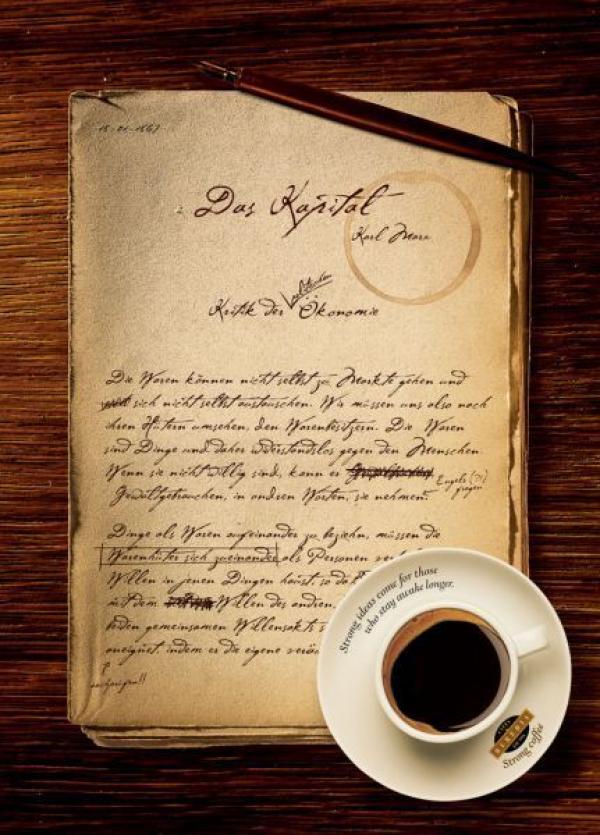 18-01-1867
Das Kapital
Karl Marx
politischen
Kritik der Ökonomie
Die Waren können nicht selbst zu Markte gehen und
sich nicht selbst austauschen. Wir müssen uns also nach
ihren Hütern umsehen, den Warenbesitzern. Die Waren
sind Dinge und daher widerstandslos gegen den Menschen.
Wenn sie nicht willig sind, kann er
Engels (?!)
fragen
Gewalt gebrauchen, in andren Worten, sie nehmen.
Dinge als Waren aufeinander zu beziehn, müssen die
Warenhüter sich zueinander als Personen
Willen in jenen Dingen haust, so
mit dem Willen des andren,
beiden gemeinsamen Willensakts
aneignet, indem er die eigene
Strong ideas come for those
who stay awake longer.
Strong coffee